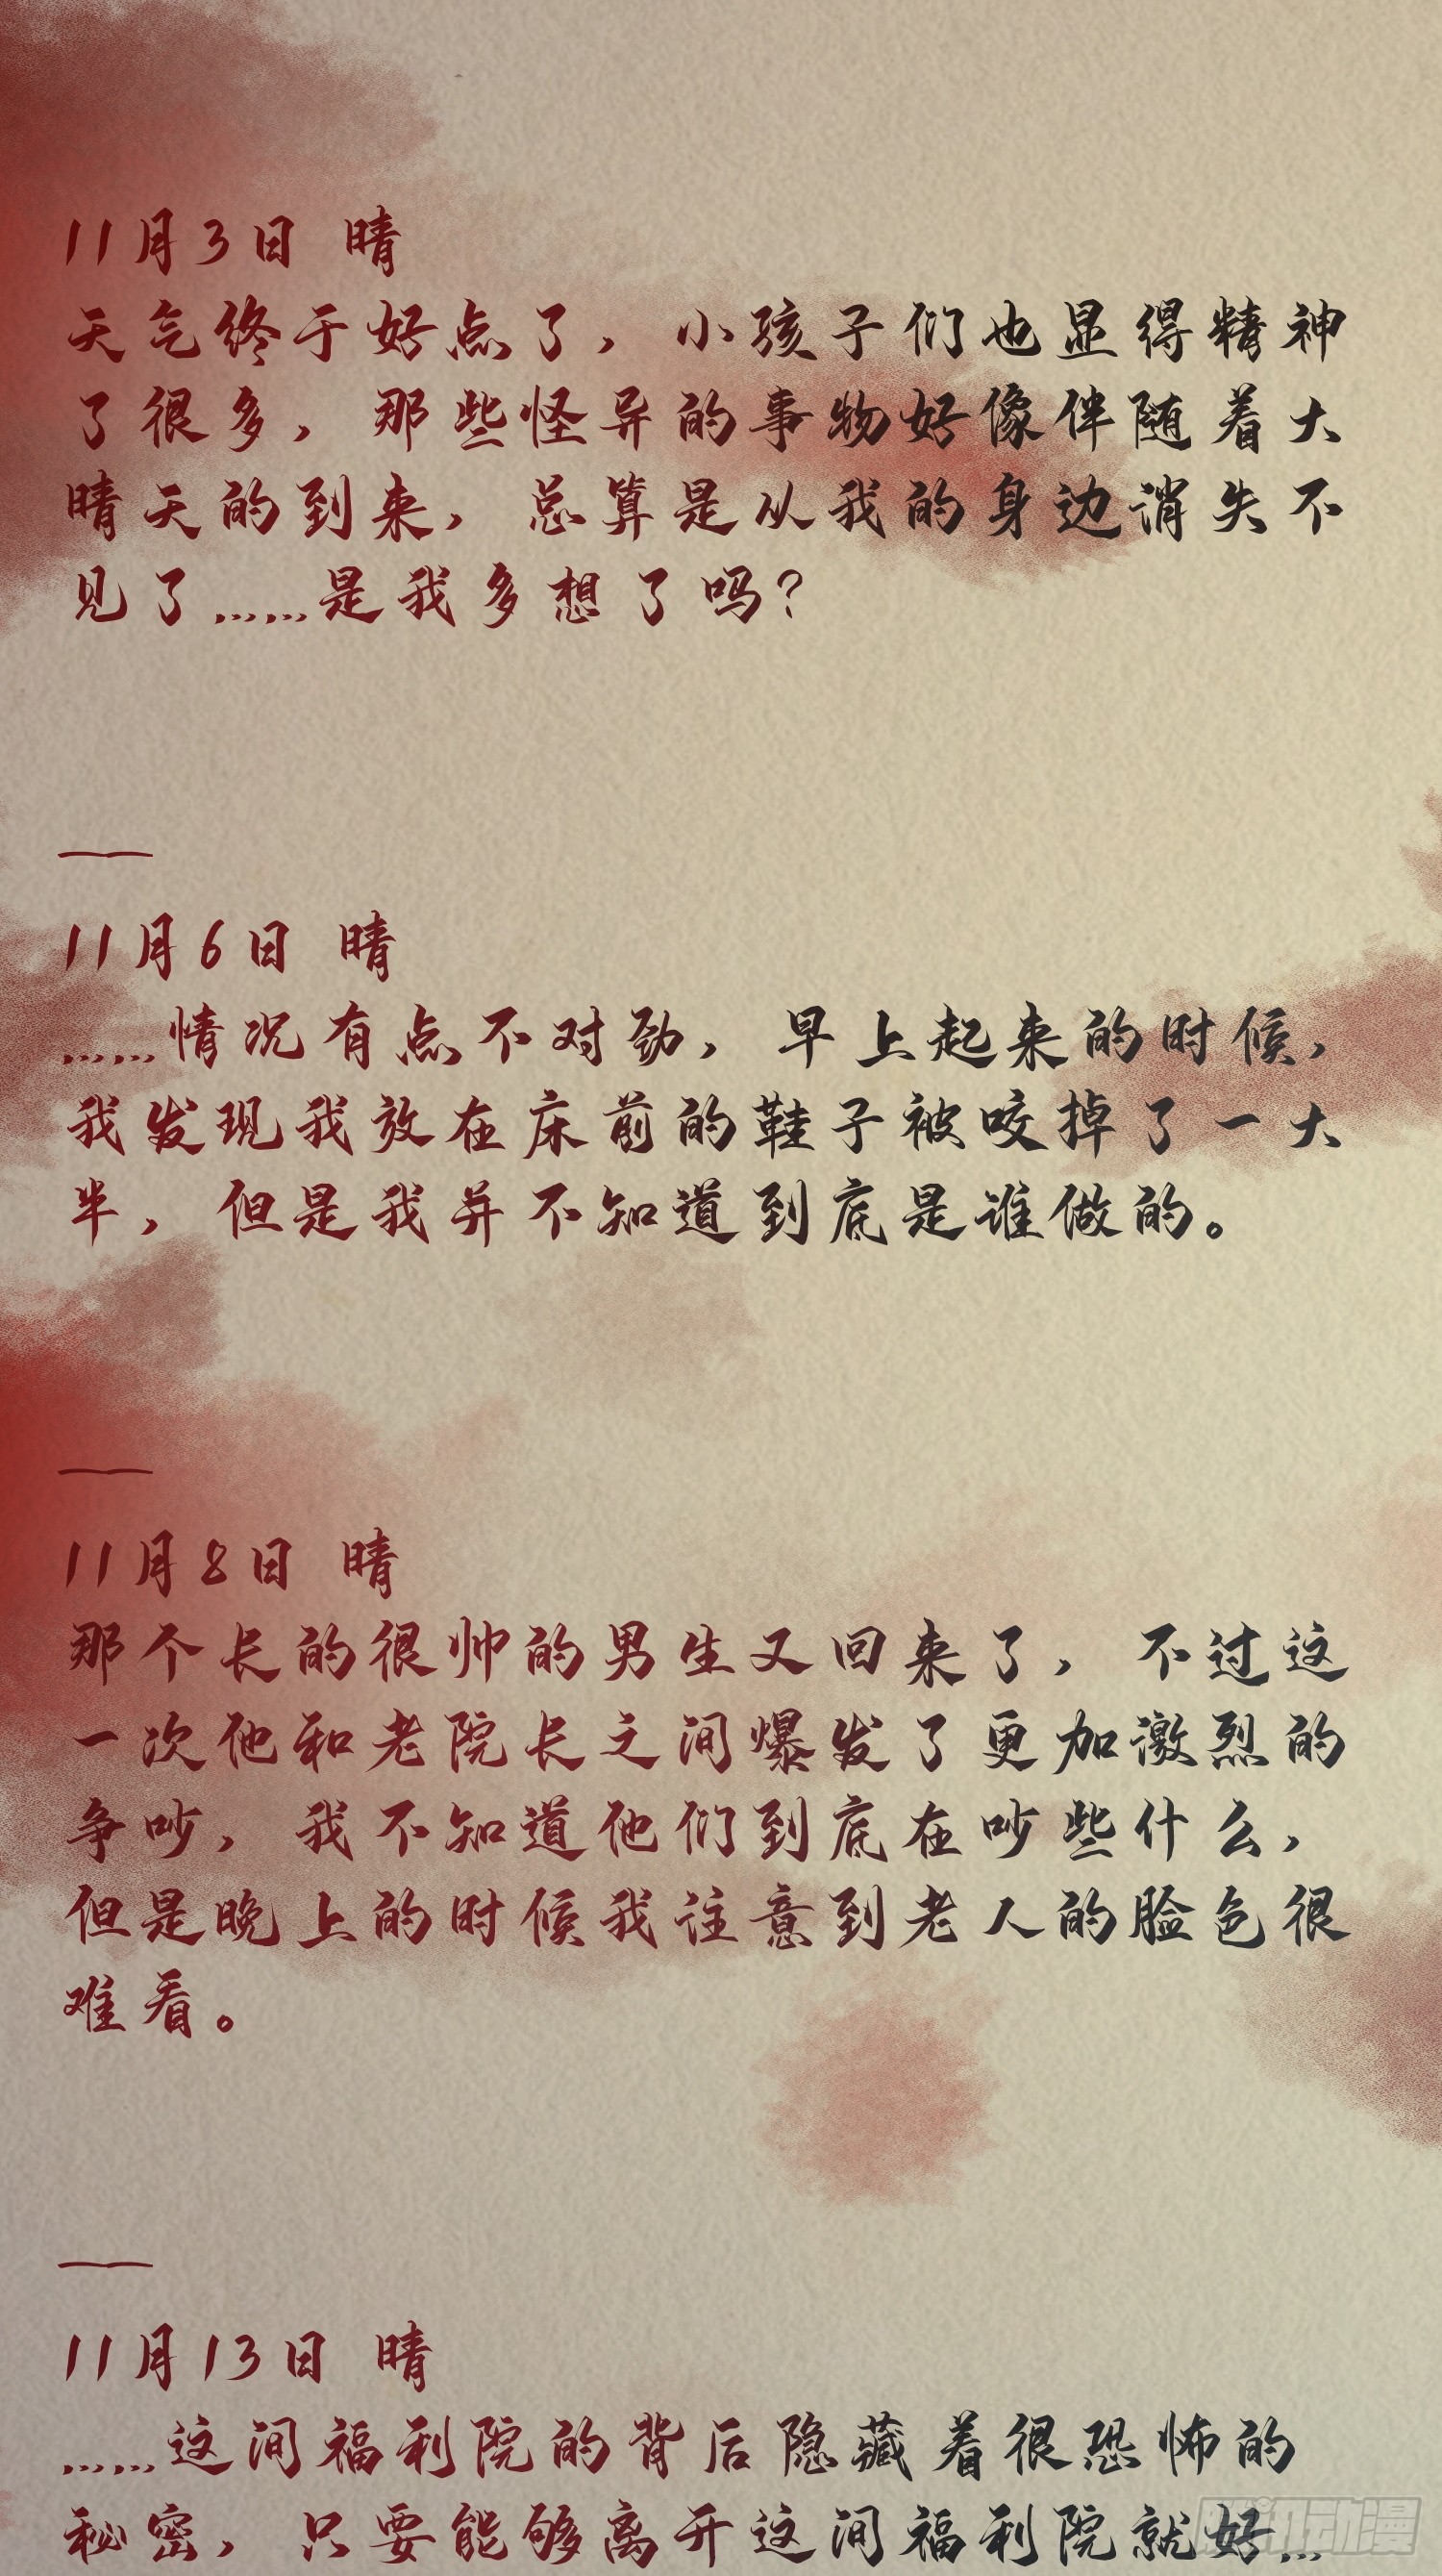 11月3日 晴
天气终于好点了，小孩子们也显得精神
了很多，那些怪异的事物好像伴随着大
晴天的到来，总算是从我的身边消失不
见了……是我多想了吗？
——
11月6日 晴
……情况有点不对劲，早上起来的时候，
我发现我放在床前的鞋子被咬掉了一大
半，但是我并不知道到底是谁做的。
——
11月8日 晴
那个长的很帅的男生又回来了，不过这
一次他和老院长之间爆发了更加激烈的
争吵，我不知道他们到底在吵些什么，
但是晚上的时候我注意到老人的脸色很
难看。
——
11月13日 晴
……这间福利院的背后隐藏着很恐怖的
秘密，只要能够离开这间福利院就好…
腾讯动漫